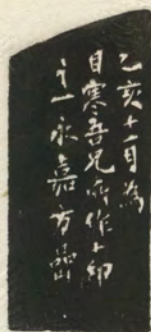 乙亥十一月為
目寒吾兄所作十印
之一永嘉方喦